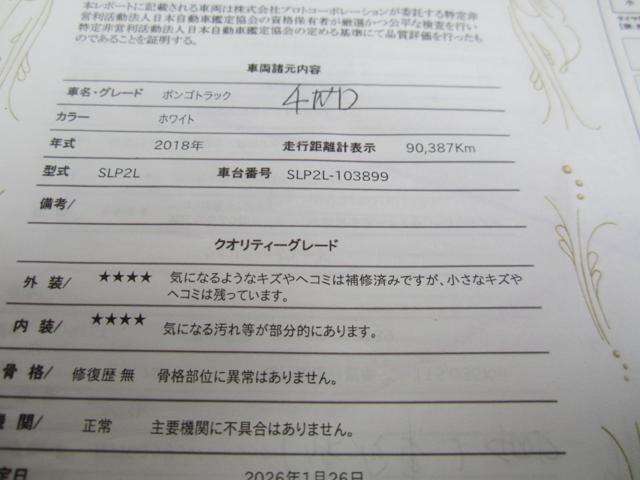 本レポートに記載される車両は株式会社プロトコーポレーションが委託する特定非
営利活動法人日本自動車鑑定協会の資格保有者が厳選かつ公平な検査を行い
特定非営利活動法人日本自動車鑑定協会の定める基準にて品質評価を行ったも
のであることを証明する。
車両諸元内容
車名・グレード ボンゴトラック 4WD
カラー ホワイト
年式 2018年 走行距離計表示 90,387Km
型式 SLP2L 車台番号 SLP2L-103899
備考/
クオリティーグレード
外 装/ ★★★★ 気になるようなキズやヘコミは補修済みですが、小さなキズや
ヘコミは残っています。
内 装/ ★★★★ 気になる汚れ等が部分的にあります。
骨 格/ 修復歴 無 骨格部位に異常はありません。
機 関/ 正常 主要機関に不具合はありません。
定日 2026年1月26日